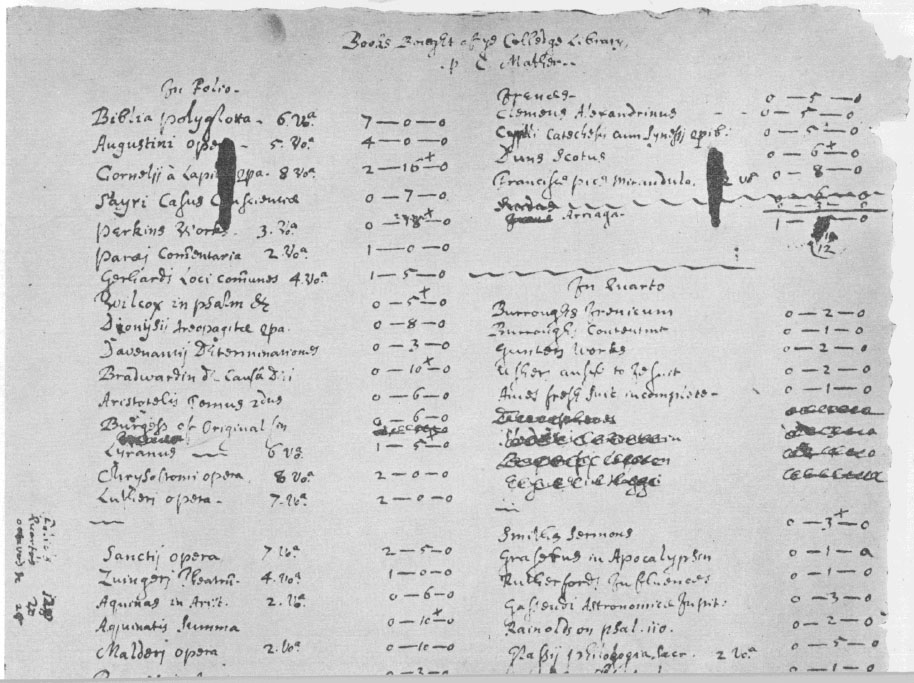 Books Bought of ye Colledge Library,
p C. Mather.
In Folio.
Biblia polyglotta. 6 Vo. 7-0-0
Augustini opera 5. Vo. 4-0-0
Cornelij à Lapide opa. 8 Vo. 2-16-0
Sayri Casus Conscientiæ 0-7-0
Perkins Works. 3. Vo. 0-18-0
Paraj Commentaria 2. Vo. 1-0-0
Gerhardi Loci Communes 4. Vo. 1-5-0
Wilcox in psalm &c 0-5-0
Dionysii Areopagitæ opa. 0-8-0
Davenantij Determinationes 0-3-0
Bradwardin De Causâ Dei 0-10-0
Aristotelis Tomus 2dus 0-6-0
Burgess of Original sin 0-6-0
Lyranus 6 Vo. 1-5-0
Chrysostomi opera 8 Vo. 2-0-0
Lutheri opera. 7. Vo. 2-0-0
Sanctij opera 7 Vo. 2-5-0
Zuingerj Theatrū. 4. Vo. 1-0-0
Aquinas in Arist. 2. Vo. 0-6-0
Aquinatis Summa 0-10-0
Malderj opera 2. Vo. 0-10-0
0-3-0
Irenæus 0-5-0
Clemens Alexandrinus 0-5-0
Cyrilli Catecheses cum Synesij epis: 0-6-0
Duns Scotus 0-8-0
Francisci pici Mirandula. 2 Vo.
Arriaga. 1-5-0
12
In Quarto
Burroughs Irenicum 0-2-0
Burroughs Contentmt 0-1-0
Gunters Works 0-2-0
Usher answr to Jesuit 0-2-0
Ames fresh suit incomplete. 0-1-0
Smiths Sermons 0-3-0
Graserus in Apocalypsin 0-1-0
Rutherfords Influences 0-1-0
Gassendi Astronomica Instit: 0-3-0
Rainolds on psal. 110. 0-2-0
Glassij philologia sacr. 2 Vo. 0-5-0
0-1-0